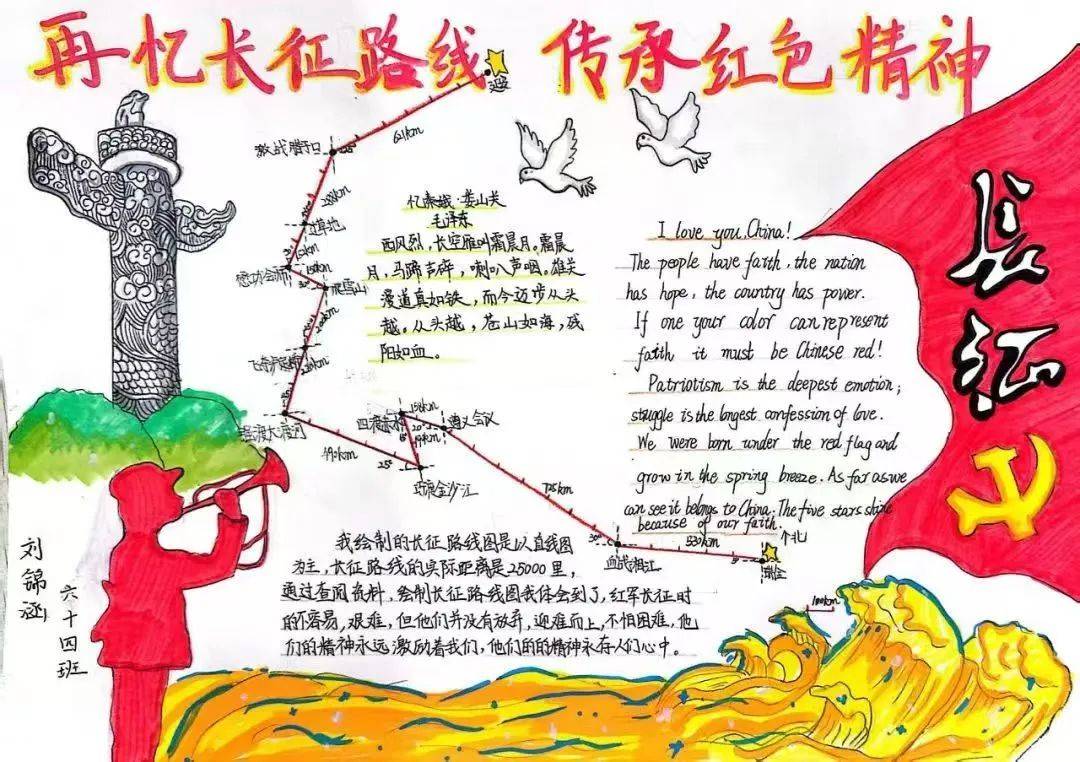 再忆长征路线 传承红色精神
621km
激战腊子口
过草地
懋功会师
爬雪山
强渡大渡河
490km
25°
巧渡金沙江
四渡赤水
遵义会议
血战湘江
530km
瑞金
个北
100km
忆秦娥·娄山关
毛泽东
西风烈,长空雁叫霜晨月。霜晨
月,马蹄声碎,喇叭声咽。雄关
漫道真如铁,而今迈步从头
越。从头越,苍山如海,残
阳如血。
I love you, China!
The people have faith, the nation
has hope, the country has power.
If one your color can represent
faith it must be Chinese red!
Patriotism is the deepest emotion;
struggle is the longest confession of love.
We were born under the red flag and
grow in the spring breeze. As far as we
can see it belongs to China. The five stars shine
because of our faith.
长征
我绘制的长征路线图是以直线图
为主,长征路线的实际距离是25000里,
通过查阅资料,绘制长征路线图我体会到了,红军长征时
的不容易,艰难,但他们并没有放弃,迎难而上,不怕困难,他
们的精神永远激励着我们,他们的的精神永存人们心中。
刘锦涵
六十四班